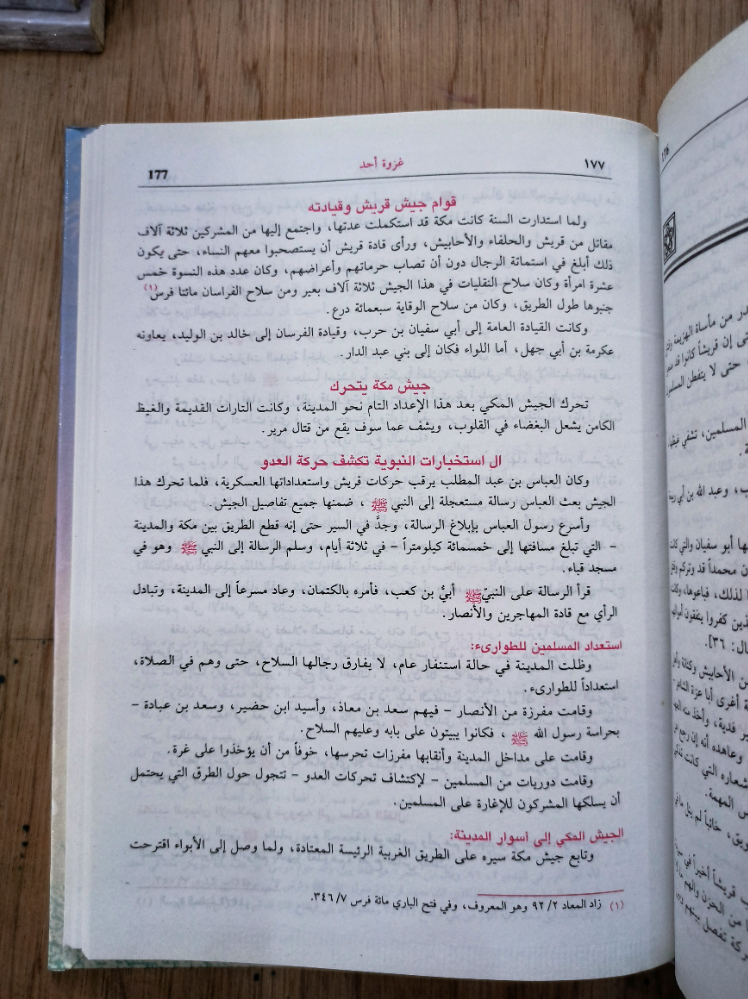 ١٧٧ غزوة أحد 177
قوام جيش قريش وقيادته
ولما استدارت السنة كانت مكة قد استكملت عدتها، واجتمع إليها من المشركين ثلاثة آلاف
مقاتل من قريش والحلفاء والأحابيش، ورأى قادة قريش أن يستصحبوا معهم النساء، حتى يكون
ذلك أبلغ في استماتة الرجال دون أن تصاب حرماتهم وأعراضهم، وكان عدد هذه النسوة خمس
عشرة امرأة وكان سلاح النقليات في هذا الجيش ثلاثة آلاف بعير ومن سلاح الفراسان مائتا فرس(١)
جنبوها طول الطريق، وكان من سلاح الوقاية سبعمائة درع.
وكانت القيادة العامة إلى أبي سفيان بن حرب، وقيادة الفرسان إلى خالد بن الوليد، يعاونه
عكرمة بن أبي جهل، أما اللواء فكان إلى بني عبد الدار.
جيش مكة يتحرك
تحرك الجيش المكي بعد هذا الإعداد التام نحو المدينة، وكانت التارات القديمة والغيظ
الكامن يشعل البغضاء في القلوب، ويشف عما سوف يقع من قتال مرير.
ال استخبارات النبوية تكشف حركة العدو
وكان العباس بن عبد المطلب يرقب حركات قريش واستعداداتها العسكرية، فلما تحرك هذا
الجيش بعث العباس رسالة مستعجلة إلى النبي ﷺ ، ضمنها جميع تفاصيل الجيش.
وأسرع رسول العباس بإبلاغ الرسالة، وجدَّ في السير حتى إنه قطع الطريق بين مكة والمدينة
– التي تبلغ مسافتها إلى خمسمائة كيلومتراً – في ثلاثة أيام، وسلم الرسالة إلى النبي ﷺ وهو في
مسجد قباء.
قرأ الرسالة على النبيّ ﷺ أبيُّ بن كعب، فأمره بالكتمان، وعاد مسرعاً إلى المدينة، وتبادل
الرأي مع قادة المهاجرين والأنصار.
استعداد المسلمين للطوارىء:
وظلت المدينة في حالة استنفار عام، لا يفارق رجالها السلاح، حتى وهم في الصلاة،
استعداداً للطوارىء.
وقامت مفرزة من الأنصار – فيهم سعد بن معاذ، وأسيد ابن حضير، وسعد بن عبادة –
بحراسة رسول الله ﷺ ، فكانوا يبيتون على بابه وعليهم السلاح.
وقامت على مداخل المدينة وأنقابها مفرزات تحرسها، خوفاً من أن يؤخذوا على غرة.
وقامت دوريات من المسلمين – لإكتشاف تحركات العدو – تتجول حول الطرق التي يحتمل
أن يسلكها المشركون للإغارة على المسلمين.
الجيش المكي إلى أسوار المدينة:
وتابع جيش مكة سيره على الطريق الغربية الرئيسة المعتادة، ولما وصل إلى الأبواء اقترحت
(١) زاد المعاد ٩٢/٢ وهو المعروف، وفي فتح الباري مائة فرس ٣٤٦/٧.
176
در من مأساة الهزيمة
حتى لا يتفطن
المسلمين، تشفي غيظها
ب، وعبد الله بن أبي ربيعة
ها أبو سفيان والتي كانت
ن محمداً قد وتركم
ا لذلك، فباعوها، وكانت
ذين كفروا ينفقون أموالهم
ال: ٣٦].
ن الأحابيش وكنانة وأهل
ة أغرى أبا عزة الشاعر –
ر فدية، وأخذ منه
وعاهده أنه إن رجع
شعاره التي كانت
س المهمة.
ويق، خائباً لم ينل
قريشاً أخيراً في
ا من الحزن والهم
ركة تفصل بينهم